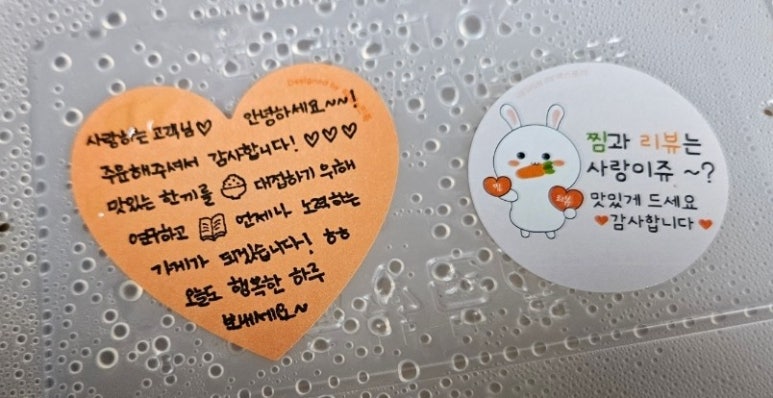 Designed by
사랑하는 고객님♡ 안녕하세요~~!
주문해주셔서 감사합니다! ♡♡♡
맛있는 한끼를 대접하기 위해
연구하고 언제나 노력하는
가게가 되겠습니다! ㅎㅎ
오늘도 행복한 하루
보내세요~
찜과 리뷰는
사랑이쥬 ~?
맛있게 드세요
♥감사합니다♥
찜
리뷰